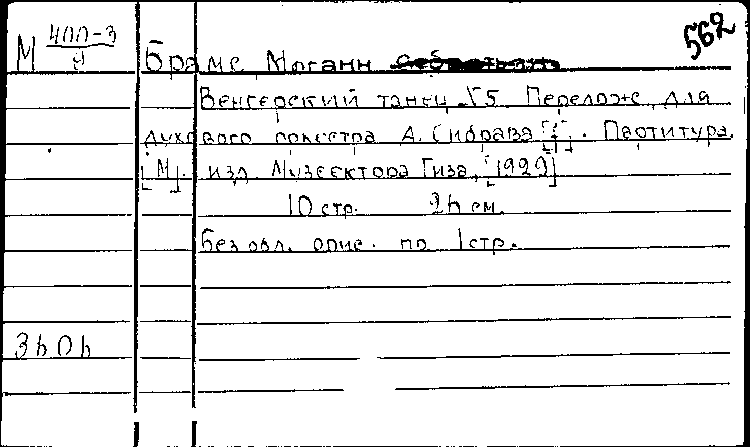 562
М 400-3
Брамс, Иоганн
Венгерский танец №5. Перелож. для
духового оркестра А. [?]. Партитура.
[М]. изд. Музсектора Гиза, [1929]
10 стр. 26 см.
Без обл. опис. по 1 стр.